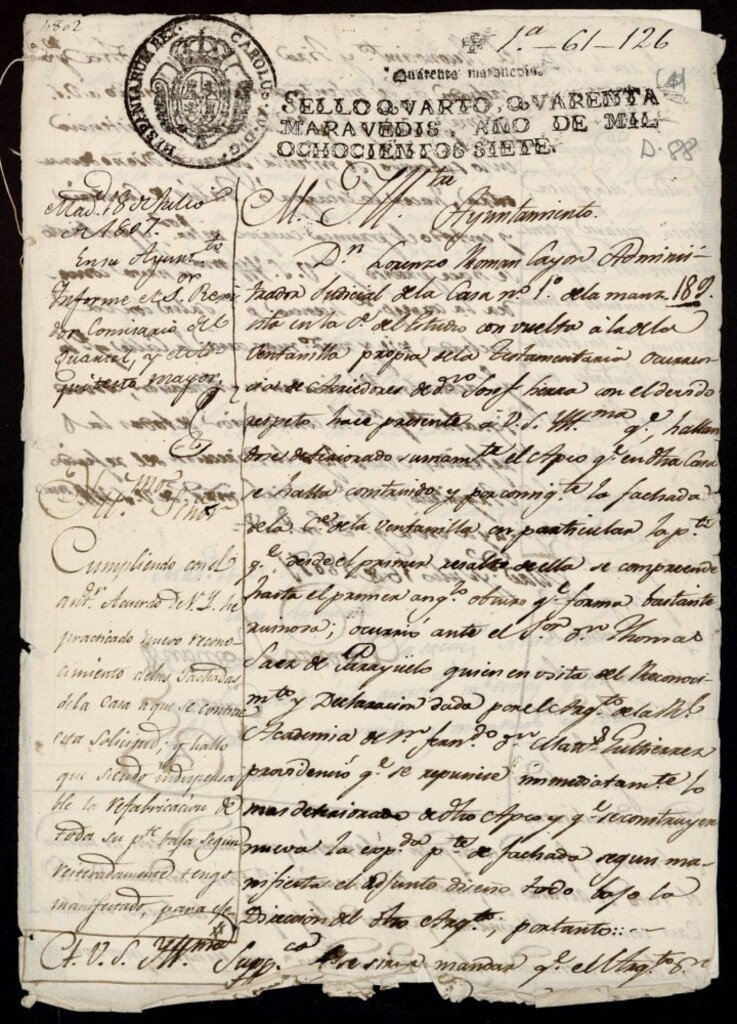 1802
HISPANIARUM REX. CAROLUS IV D G
1.ª-61-126
Quarenta maravedis.
(4)
SELLO QVARTO, QVARENTA
MARAVEDIS, AÑO DE MIL
OCHOCIENTOS SIETE.
D. 88
Mad.d 18 de Julio
de 1807.
En su Ayunt.to
Informe el S.or Regi
dor Comisario del
Quartel, y el Ar
quitecto mayor
Ill.mos Señor
Cumpliendo con el
ant.or Acuerdo de V.I. he
practicado nuevo recono-
cimiento de las fachadas
de la Casa a que se contrae
esta solicitud; y hallo
que siendo indispensa
ble la refabricacion de
toda su p.te baja segun
reiteradamente tengo
manifestado, para
M. Ill.tre Ayuntamiento.
D.n Lorenzo Roman Cayon Adminis-
trador Judicial de la Casa n.º 1.º de la manz.
sita en la C.e del Estudio con vuelta á la de la
Ventanilla propia de la Testamentaria
de Acrehedores de d.n Josef Sierra con el devido
respeto hace presente á V.S. Ill.ma q.e, hallan
dose deteriorado sumam.te el Apeo q.e en dha Casa
se halla construido; y por consig.te la fachada
de la C.e de la Ventanilla en particular la p.te
q.e desde el primer resalto de ella se comprende
hasta el primer ang.o obtuso q.e forma bastante
ruinosa; ocurrió ante el S.or d.n Thomas
Saez de Parayuelo quien en vista del Reconoci
m.to y Declaracion dada por el Arq.to de la R.l
Academia de S.n Fern.do d.n Man.l Gutierrez
providenció q.e se repusiese immediatam.te lo
mas deteriorado de dho Apeo y q.e se construyera
nueva la exp.da p.te de fachada segun ma-
nifiesta el adjunto diseño todo bajo la
Direccion del dho Arq.to, portanto:::-
A V.S. Ill.ma Supp.ca se sirva mandar q.e el Arq.to